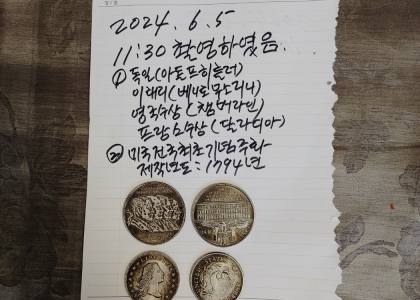 2024. 6. 5
11:30 촬영하였음.
① 독일(아돌프히틀러)
이태리(베니토 무소리니)
영국수상(챔버라인)
프랑스수상(달라디아)
② 미국 건국최초기념주화
제작년도: 1794년